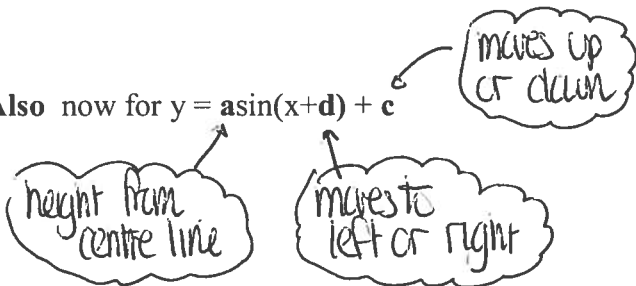 moves up
or down
Also now for y = asin(x+d) + c
height from
centre line
moves to
left or right